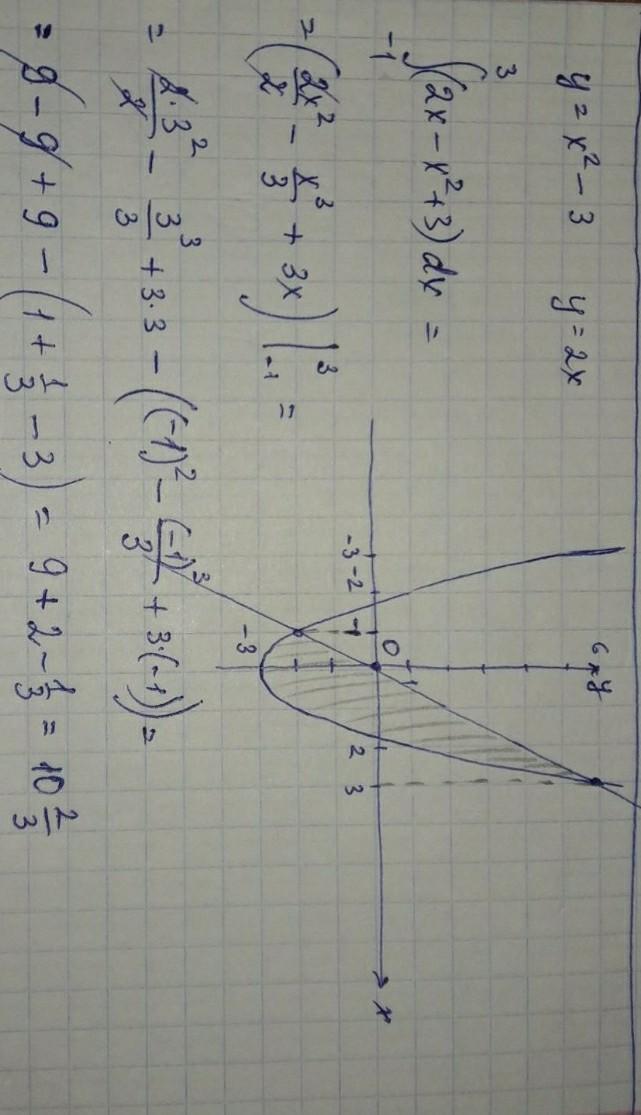 y = x² − 3 y = 2x
∫₋₁³ (2x − x² + 3) dx =
= (2x²/2 − x³/3 + 3x) |₋₁³ =
= 2·3²/2 − 3³/3 + 3·3 − ((-1)² − (-1)³/3 + 3·(-1)) =
= 9 − 9 + 9 − (1 + 1/3 − 3) = 9 + 2 − 1/3 = 10 2/3
6 y
0
-3 -2 -1 1 2 3 x
-3